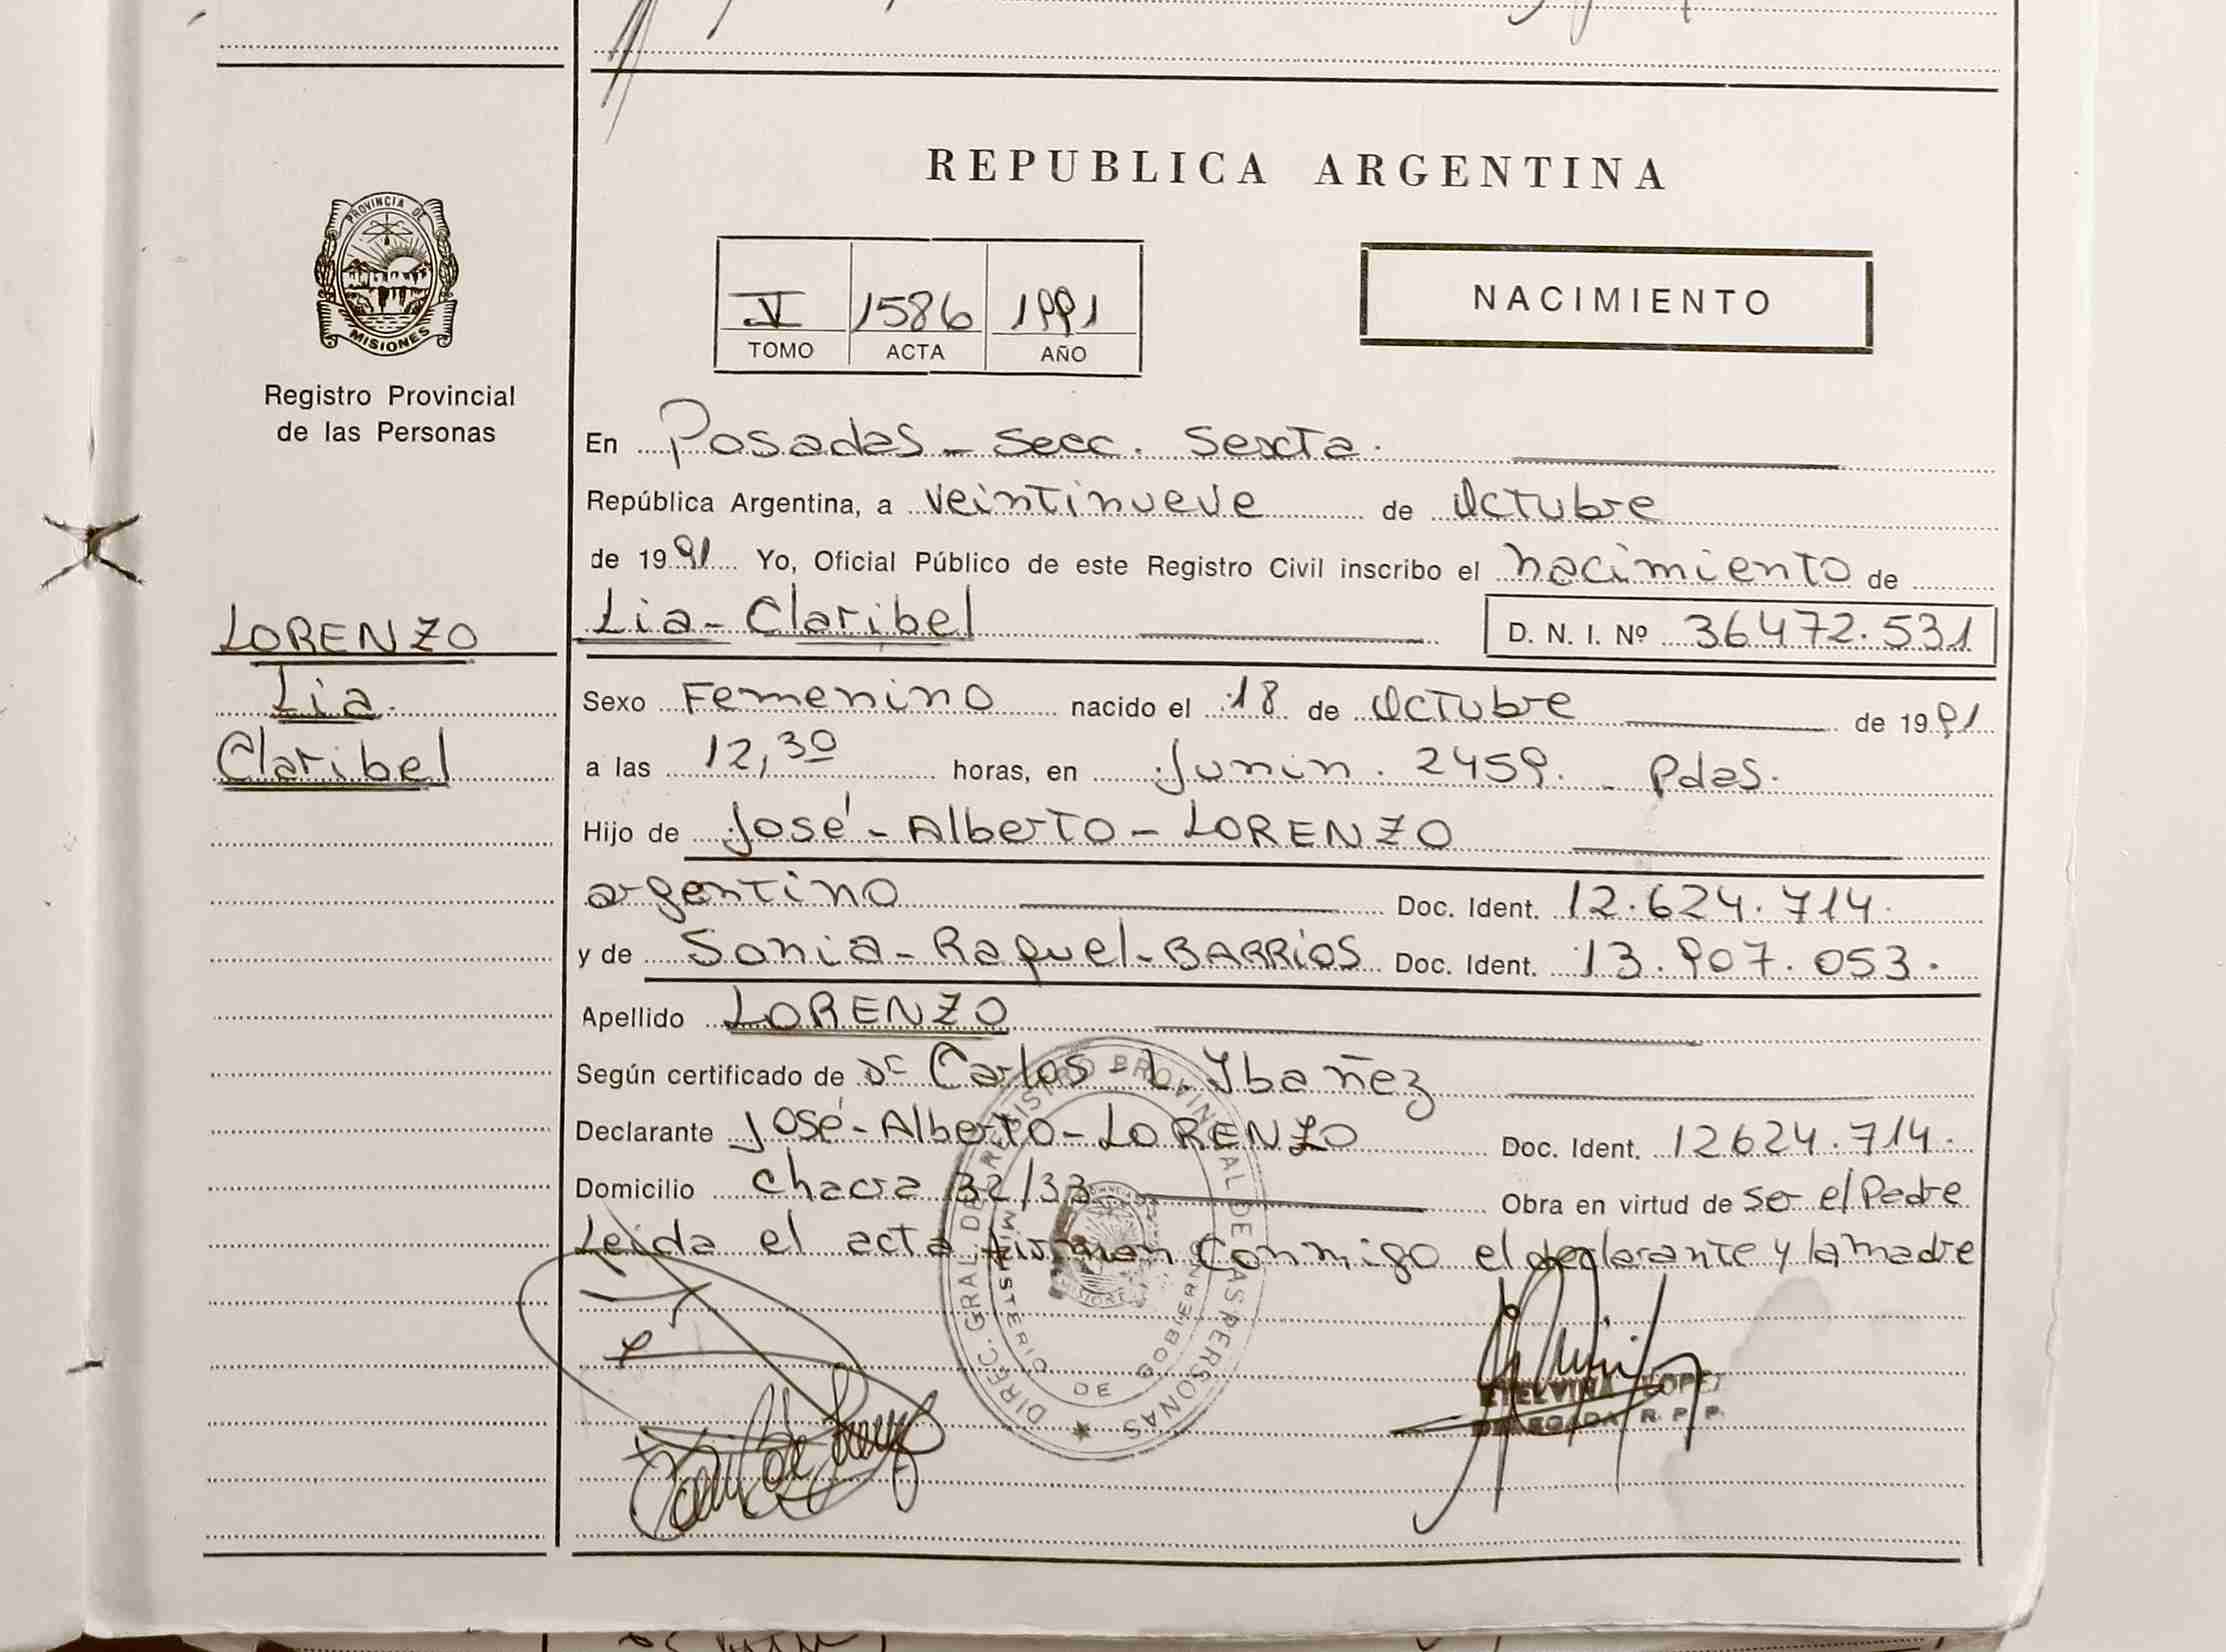 PROVINCIA DE
MISIONES
Registro Provincial
de las Personas
LORENZO
Lia
Claribel
REPUBLICA ARGENTINA
V 1586 1991
TOMO ACTA AÑO
NACIMIENTO
En Posadas - Secc. Sexta.
República Argentina, a veintinueve de Octubre
de 1991 Yo, Oficial Público de este Registro Civil inscribo el nacimiento de
Lia - Claribel D. N. I. Nº 36472.531
Sexo Femenino nacido el 18 de Octubre de 1991
a las 12,30 horas, en Junin. 2459. - Pdas.
Hijo de José - Alberto - LORENZO
argentino Doc. Ident. 12.624.714.
y de Sonia - Raquel - BARRIOS Doc. Ident. 13.907.053.
Apellido LORENZO
Según certificado de Dr Carlos - L. Ybañez
Declarante José - Alberto - LORENZO Doc. Ident. 12624.714.
Domicilio Chacra 32/33 Obra en virtud de ser el Padre
Leida el acta firman conmigo el declarante y la madre
DIREC. GRAL. DE REGISTRO PROVINCIAL DE LAS PERSONAS
MINISTERIO DE GOBIERNO
MISIONES
ETELVINA LOPEZ
DELEGADA R. P. P.